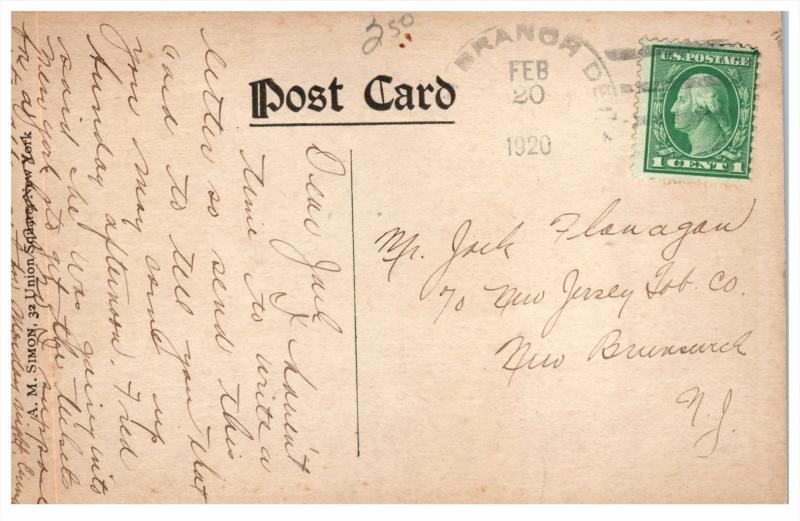 250
Post Card
BRANCH DE
FEB
20
1920
U.S. POSTAGE
1 CENT 1
Mr. Jack Flanagan
% New Jersey Tob. Co.
New Brunswick
N.J.
Dear Jack
I haven't
time to write a
letter so send this
card to tell you that
you may come up
Sunday afternoon. Fred
said he was going into
New York to get the tickets
for Monday night
A. M. SIMON, 32 Union Square New York